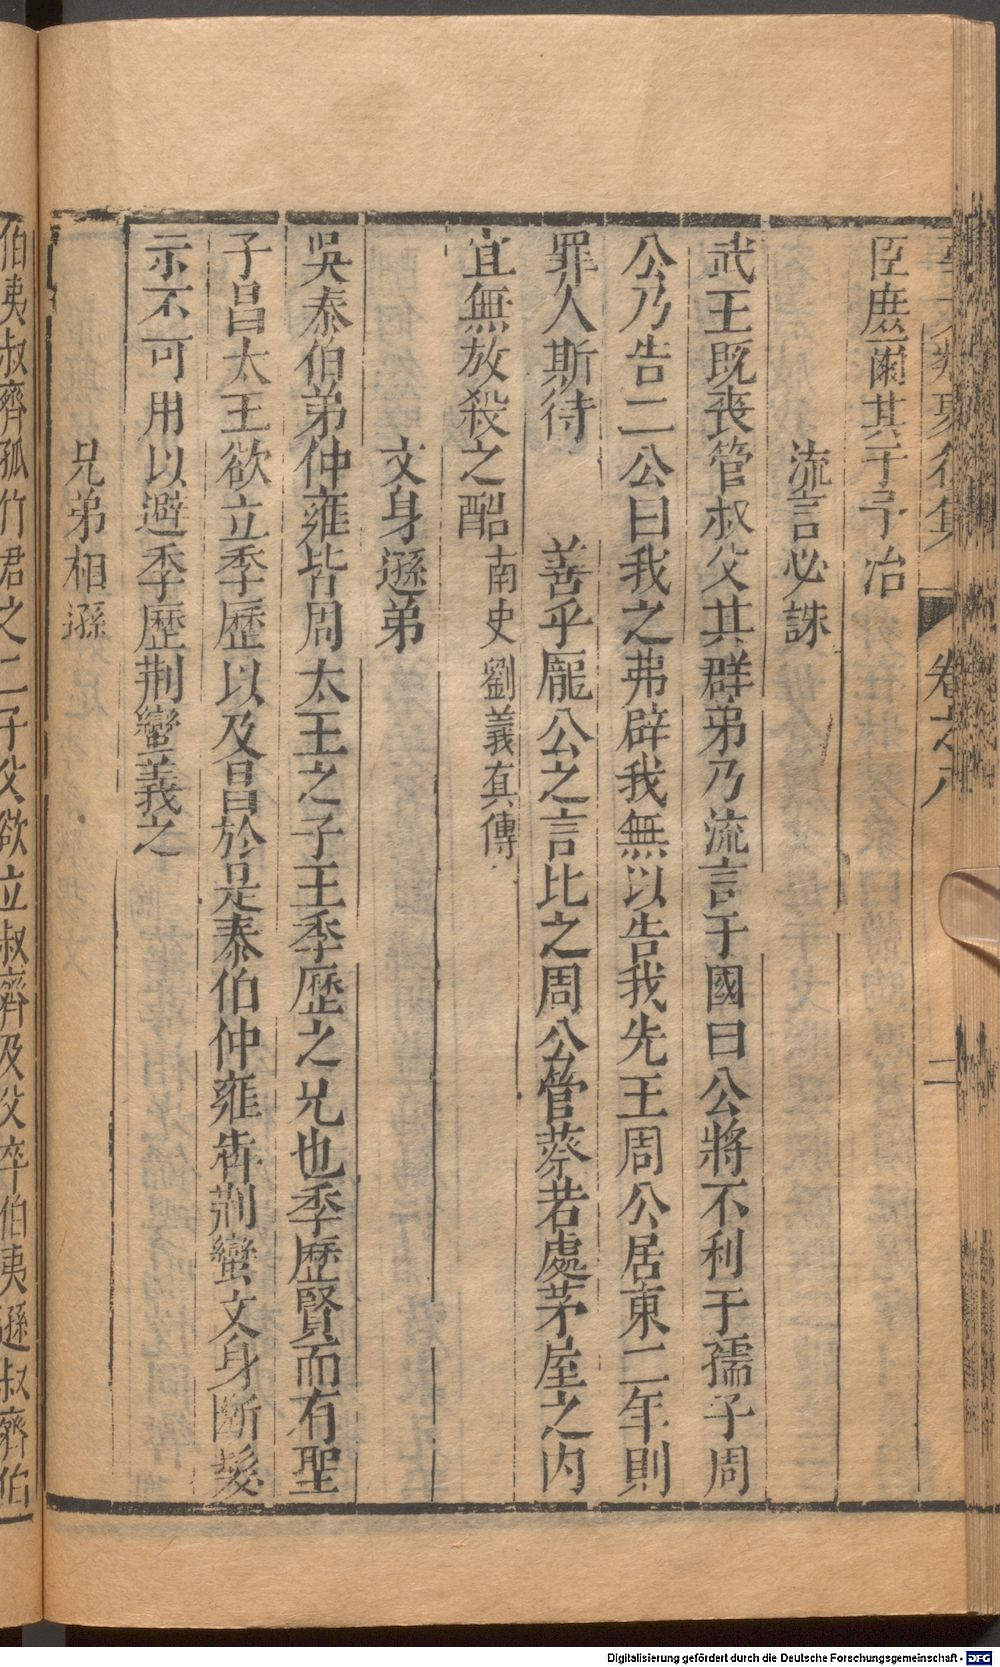 卷之八
二
臣庶爾其于予治
流言必誅
武王既喪管叔父其群弟乃流言于國曰公將不利于孺子周
公乃告二公曰我之弗辟我無以告我先王周公居東二年則
罪人斯待　善乎龐公之言比之周公管蔡若處茅屋之內
宜無放殺之酷南史劉義真傳
文身遜弟
吳泰伯弟仲雍皆周太王之子王季歷之兄也季歷賢而有聖
子昌太王欲立季歷以及昌於是泰伯仲雍奔荆蠻文身斷髮
示不可用以避季歷荆蠻義之
兄弟相遜
伯夷叔齊孤竹君之二子父欲立叔齊及父卒伯夷遜叔齊伯
Digitalisierung gefördert durch die Deutsche Forschungsgemeinschaft - DFG